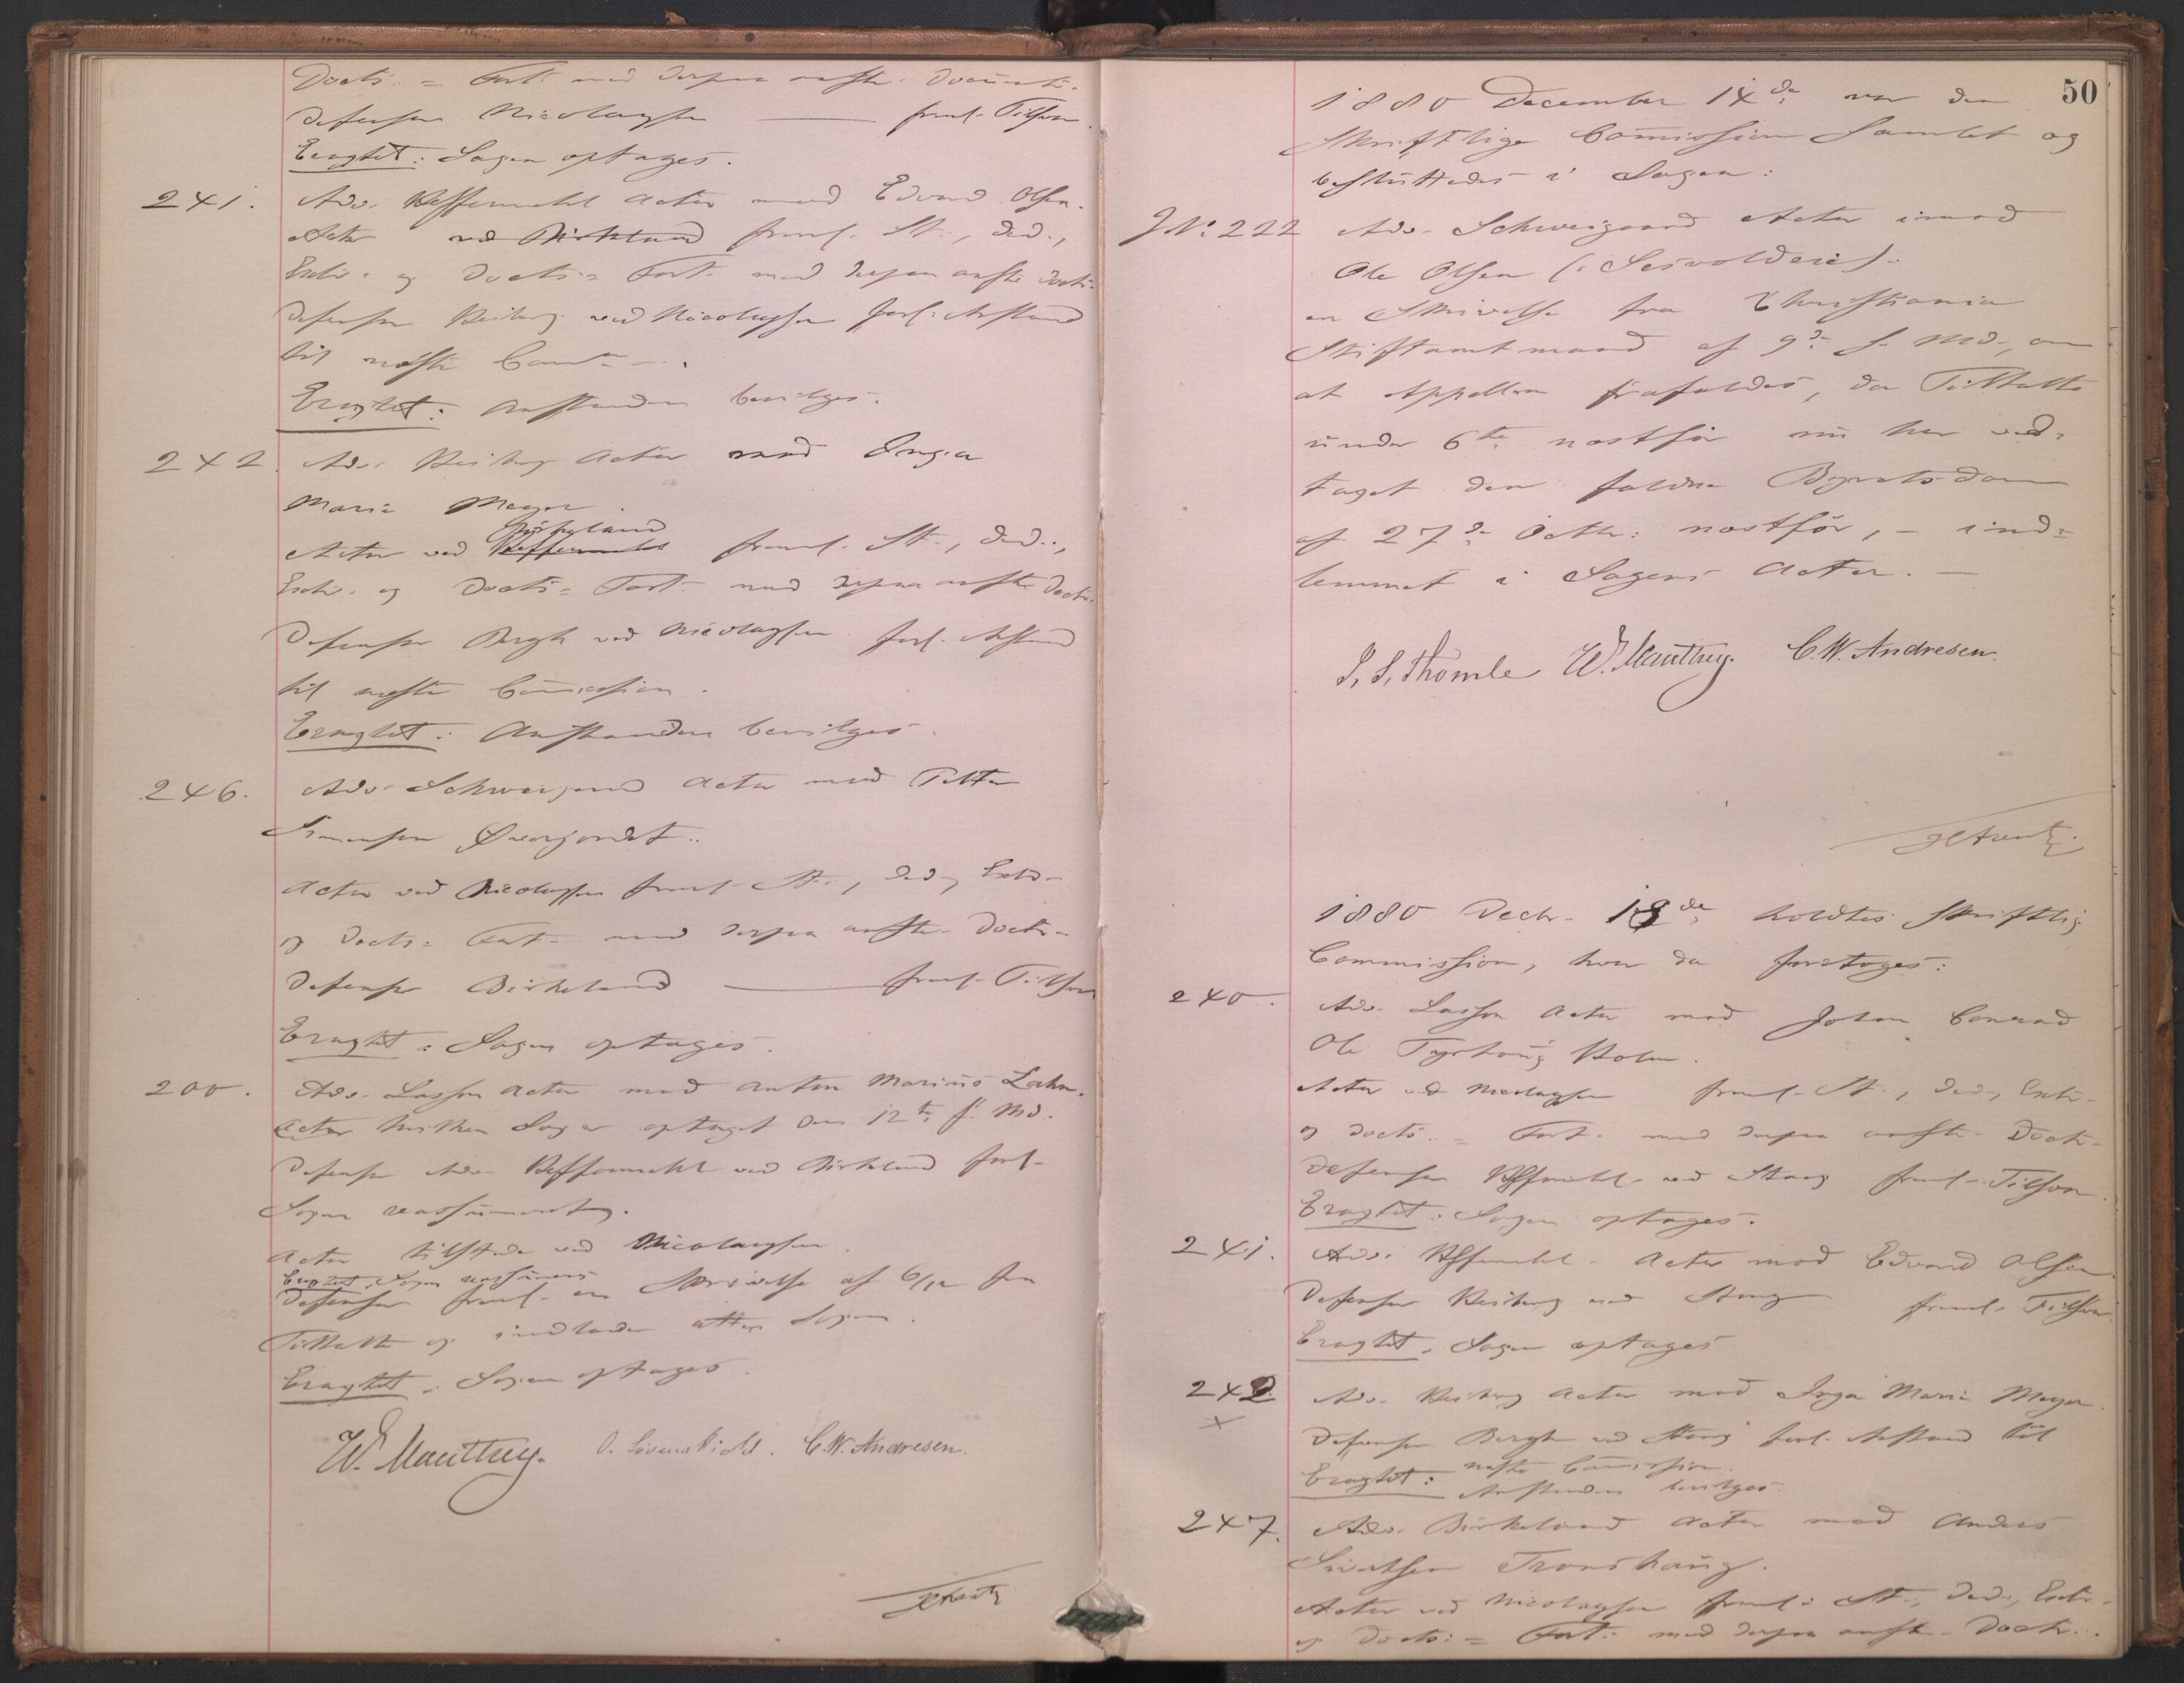 Docts. = Fort. med derpaa anførte Documenter.
Defensor Nicolaysen — freml. Tilsvar.
Eragtet: Sagen optages.
241. Adv. Heffermehl Actor mod Edvard Olsen.
Actor ved Birkeland freml. St., Ded.,
Extr. og Docts = Fort. med derpaa anførte Doctr.
Defensor Heiberg ved Nicolaysen forl. Anstand
til næste Comm.
Eragtet: Anstanden bevilges.
242. Adv. Heiberg Actor mod Inga
Maria Meyer
Birkeland
Actor ved Heffermehl freml. St., Ded.,
Extr. og Docts = Fort. med derpaa anførte Doctr.
Defensor Bergh ved Nicolaysen forl. Anstand
til næste Commission.
Eragtet: Anstanden bevilges.
246. Adv. Schweigaard Actor mod Petter
Simensen
Actor ved Nicolaysen freml. St., Ded., Extr.
og Docts = Fort. med derpaa anførte Doctr.
Defensor Birkeland — freml. Tilsvar
Eragtet: Sagen optages.
200. Adv. Lasson Actor mod Anton Marius Lahn.
Actor hvilken Sag er optaget den 12te f. Md.
Defensor Adv. Heffermehl ved Birkeland forl.
Sagen reassumeret.
Actor tilstede ved Nicolaysen.
Eragtet: Sagen reassumeres
Defensor freml. en Skrivelse af 6/12 fra
Tiltalte og indlader atter Sagen.
Eragtet: Sagen optages.
W. Manthey. O. Løvenskiold. C. W. Andresen.
50
1880 December 14de var den
Skriftlige Commission Samlet og
besluttedes i Sagen:
J No 222 Adv. Schweigaard Actor imod
Ole Olsen
en Skrivelse fra Christiania
Stiftamtmand af 9de d. Md., om
at Appellen frafaldes, da Tiltalte
under 6te næstfør nu har ved-
taget den faldne Byretsdom
af 27de Octbr: næstfør, – ind-
lemmet i Sagens Acter. –
J. S. Thomle W. Manthey. C. W. Andresen.
1880 Decbr. 18de holdtes Skriftlig
Commission, hvor da foretoges:
240. Adv. Lasson Actor mod Johan Conrad
Ole Holm.
Actor ved Nicolaysen freml. St., Ded., Extr.
og Docts. = Fort. med derpaa anførte Doctr.
Defensor Heffermehl ved Stang freml. Tilsvar.
Eragtet: Sagen optages.
241. Adv. Heffermehl Actor mod Edvard Olsen
Defensor Heiberg ved Stang freml. Tilsvar
Eragtet. Sagen optages
242. Adv. Heiberg Actor mod Inga Maria Meyer.
Defensor Bergh ved Stang forl. Anstand til
næste Commission.
Eragtet: Anstanden bevilges.
247. Adv. Birkeland Actor mod Anders
Sivertsen Tronshaug.
Actor ved Nicolaysen freml. St., Ded., Extr.
og Docts: = Fort. med derpaa anførte Doctr.